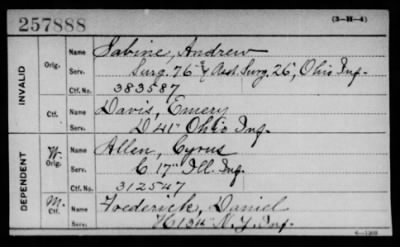 257888 (3-H-4)
INVALID
Orig. Name Sabine, Andrew
Serv. Surg. 76" & Asst. Surg. 26", Ohio Inf.
Ctf. No. 383587
Ctf. Name Davis, Emery
Serv. D 41" Ohio Inf.
DEPENDENT
W. Orig. Name Allen, Cyrus
Serv. C 17" Ill. Inf.
Ctf. No. 312547
M. Ctf. Name Frederick, Daniel
Serv. H 134" N.Y. Inf.